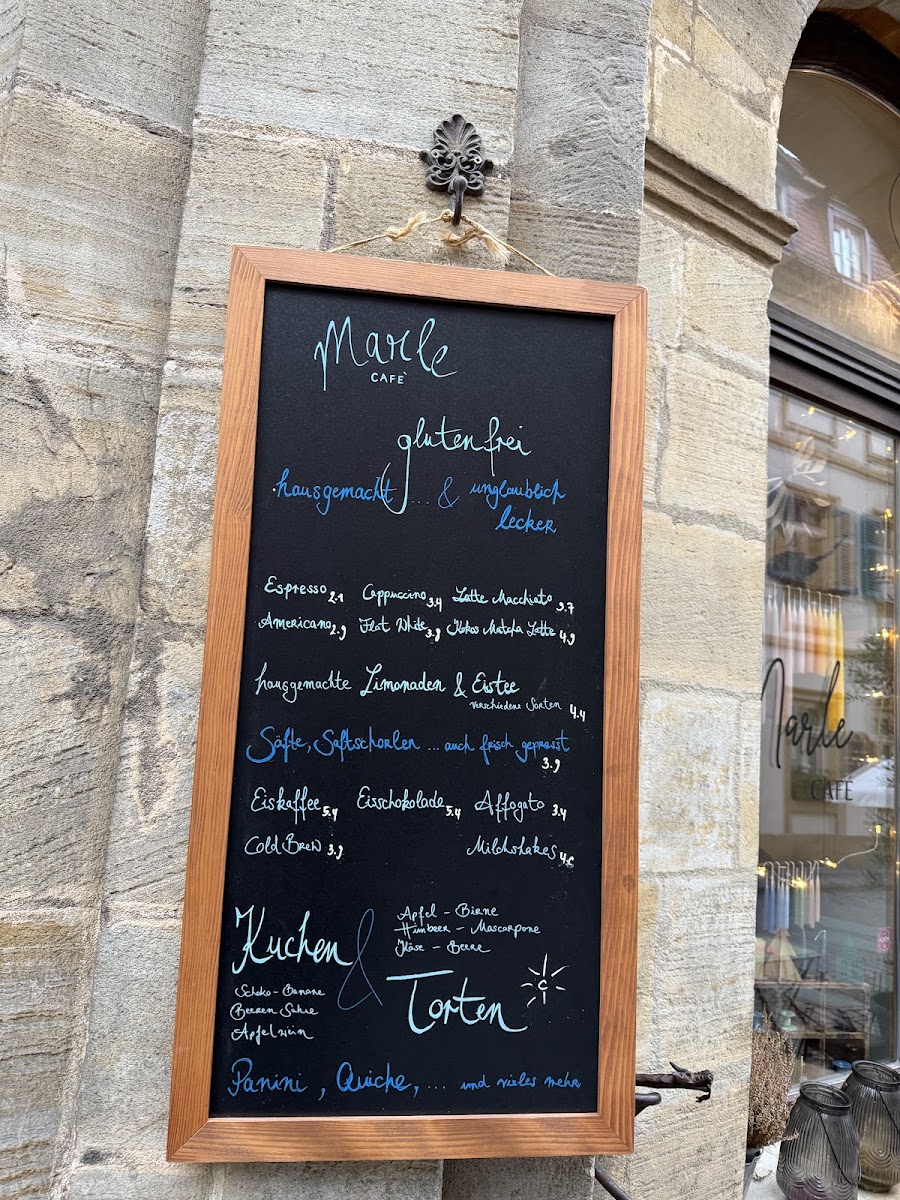 Marle
CAFÉ
glutenfrei
hausgemacht ... & unglaublich
lecker
Espresso 2.1 Cappuccino 3.4 Latte Macchiato 3.7
Americano 2.9 Flat White 3.9 Kokos Matcha Latte 4.9
hausgemachte Limonaden & Eistee
verschiedene Sorten 4.4
Säfte, Saftschorlen ... auch frisch gepresst
3.9
Eiskaffee 5.4 Eisschokolade 5.4 Affogato 3.4
Cold Brew 3.9 Milchshakes
Apfel - Birne
Himbeer - Mascarpone
Käse - Beere
Kuchen &
Schoko - Banane
Beeren Sahne
Apfelwein
Torten
Panini, Quiche, ... und vieles mehr
Marle
CAFÉ